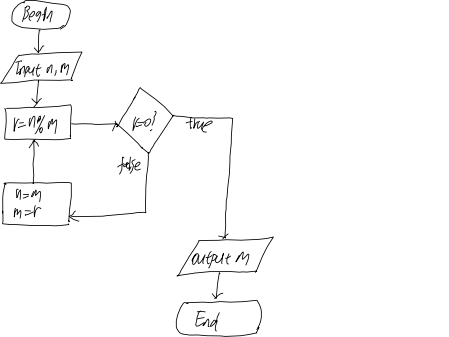 Begin
Input n, m
r=n% m
r=0?
true
false
n=m
m=r
output m
End